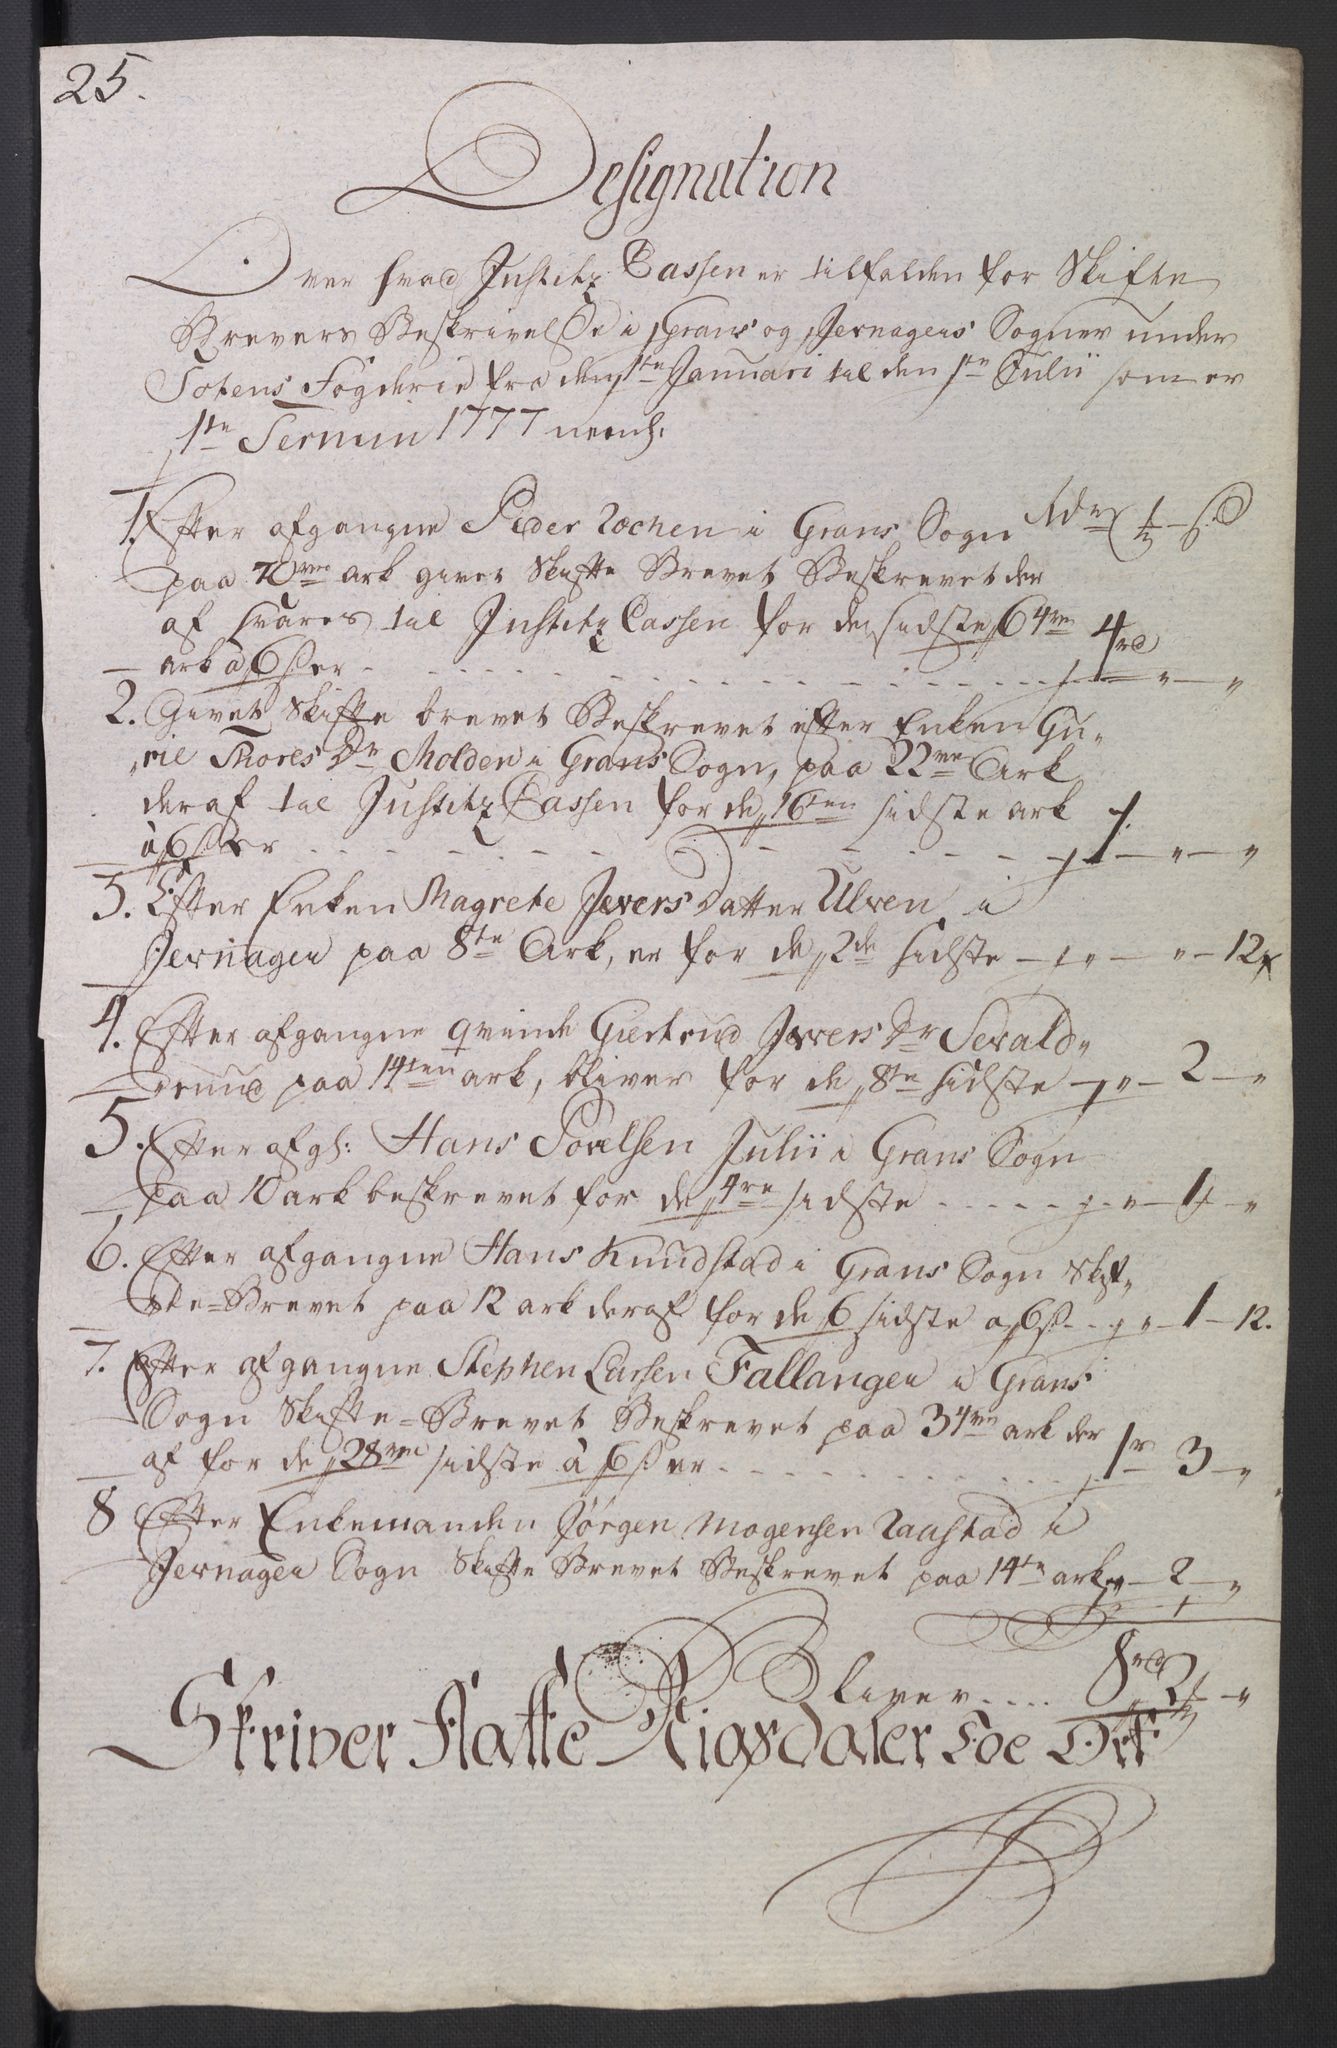 25.
Designation
Over hvad Justitz Cassen er tilfalden for Skifte
Brevers Beskrivelse i Grans og Jevnagers Sogner under
Totens Fogderie fra den 1te Januari til den 1te Julii som er
1te Termin 1777 neml:
1. Efter afgangne Peder Lochen i Grans Sogn Rdr ort ß
paa 70ve ark givet Skifte Brevet Beskrevet der
af svares til Justitz Cassen for de sidste 64re
ark à 6 ß er - - - 4rd - " - "
2. Givet Skifte brevet Beskrevet efter Enken Gu„
„rie Thores Dr Molden i Grans Sogn, paa 22ve Ark
deraf til Justitz Cassen for de 16ten sidste ark
à 6 ß er - - - 1. - " - "
3. Efter Enken Magrete Jvers Datter Ulven i
Jevnager paa 8te Ark, er for de 2de sidste - " - " - 12
4. Efter afgangne qvinde Giertrud Jvers Dr Sevald„
„rnud paa 14ten ark, bliver for de 8te sidste - " - 2 - "
5. Efter afgl: Hans Povelsen Julii i Grans Sogn
paa 10 ark beskrevet for de 4re sidste - - - " - 1 - "
6. Efter afgangne Hans Knudstad i Grans Sogn Skif„
„te=Brevet paa 12 ark deraf for de 6 sidste a 6 ß - - " - 1 - 12.
7. Efter afgangne Stephen Larsen Fallangen i Grans
Sogn Skifte=Brevet Beskrevet paa 34re ark der
af for de 28ve sidste à 6 ß er - - - 1r - 3 - "
8 Efter Enkemanden Jörgen Mogensen Raastad i
Jevnager Sogn Skifte Brevet Beskrevet paa 14te ark - " - 2 - "
Bliver . . . . 8rd 2 ort - "
Skriver Aatte Rigsdaler Toe Ort